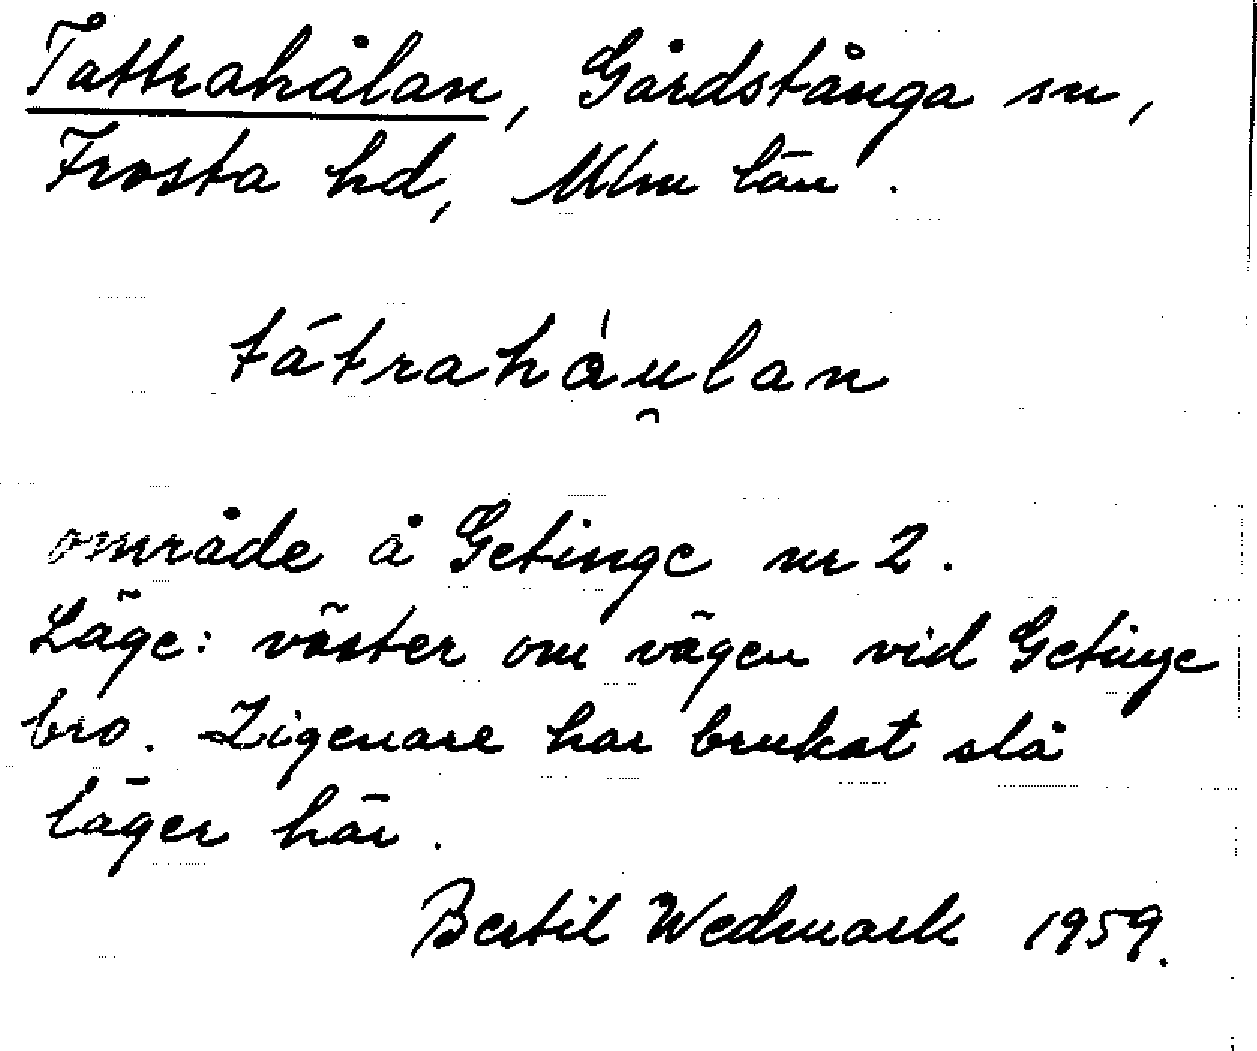 Tattrahålan, Gårdstånga sn,
Frosta hd, Mlm län.
tátrahàu̯lan
område å Getinge nr 2.
Läge: väster om vägen vid Getinge
bro. Zigenare har brukat slå
läger här.
Bertil Wedmark 1959.